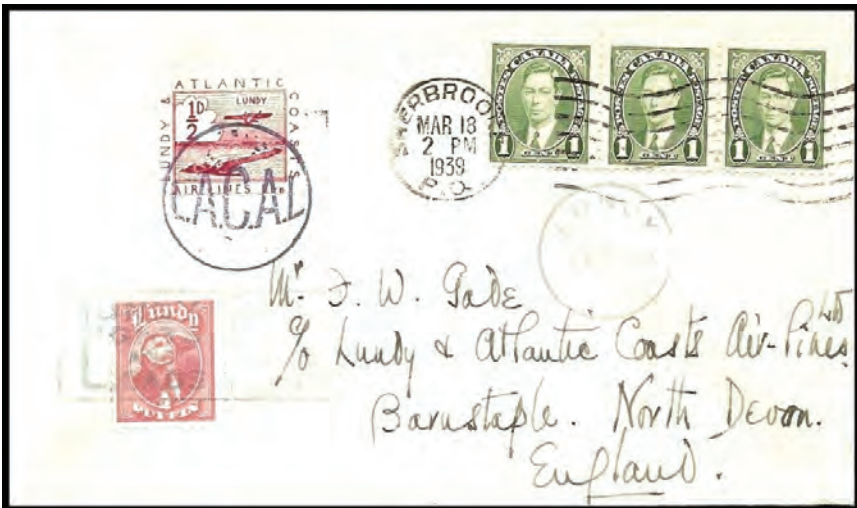 ATLANTIC
LUNDY &
COASTS
AIR LINES LTD
½D
LUNDY
L.A.C.A.L
SHERBROOKE
MAR 18
2 PM
1939
P.Q.
POSTES CANADA POSTAGE
1 CENT 1
POSTES CANADA POSTAGE
1 CENT 1
POSTES CANADA POSTAGE
1 CENT 1
Mr. F. W. Gade
c/o Lundy & Atlantic Coasts Air-Lines Ltd
Barnstaple. North Devon.
England.
Lundy
PUFFIN